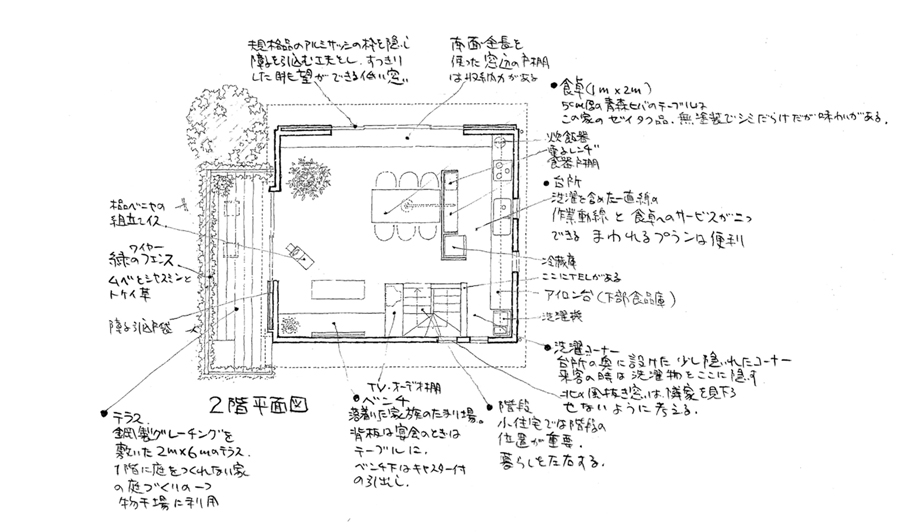 規格品のアルミサッシの枠を隠し
障子を引込む工夫とし、すっきり
した眺望ができる低い窓
南面全長を
使った窓辺の戸棚
は収納力がある
●食卓(1m×2m)
5cm厚の青森ヒバのテーブルは
この家のゼイタク品。無塗装でシミだらけだが味わいがある。
炊飯器
電子レンジ
食器戸棚
●台所
洗濯を含めた一直線の
作業動線と食卓へのサービスが二つ
できる まわれるプランは便利
冷蔵庫
ここにTELがある
アイロン台(下部食品庫)
洗濯機
●洗濯コーナー
台所の奥に設けた少し隠れたコーナー
来客の時は洗濯物をここに隠す
北の風抜き窓は隣家を見下ろ
せないように考える。
ベニヤの
組立イス
ワイヤー
緑のフェンス
ムベとジャスミンと
トケイ草
障子引込戸袋
2階平面図
TV・オーディオ棚
●ベンチ
落着いた家族のたまり場。
背板は宴会のときは
テーブルに。
ベンチ下はキャスター付
の引出し。
●階段
小住宅では階段の
位置が重要。
暮らしを左右する。
●テラス
鋼製グレーチングを
敷いた2m×6mのテラス。
1階に庭をつくれない家
の庭づくりの一つ
物干場に利用